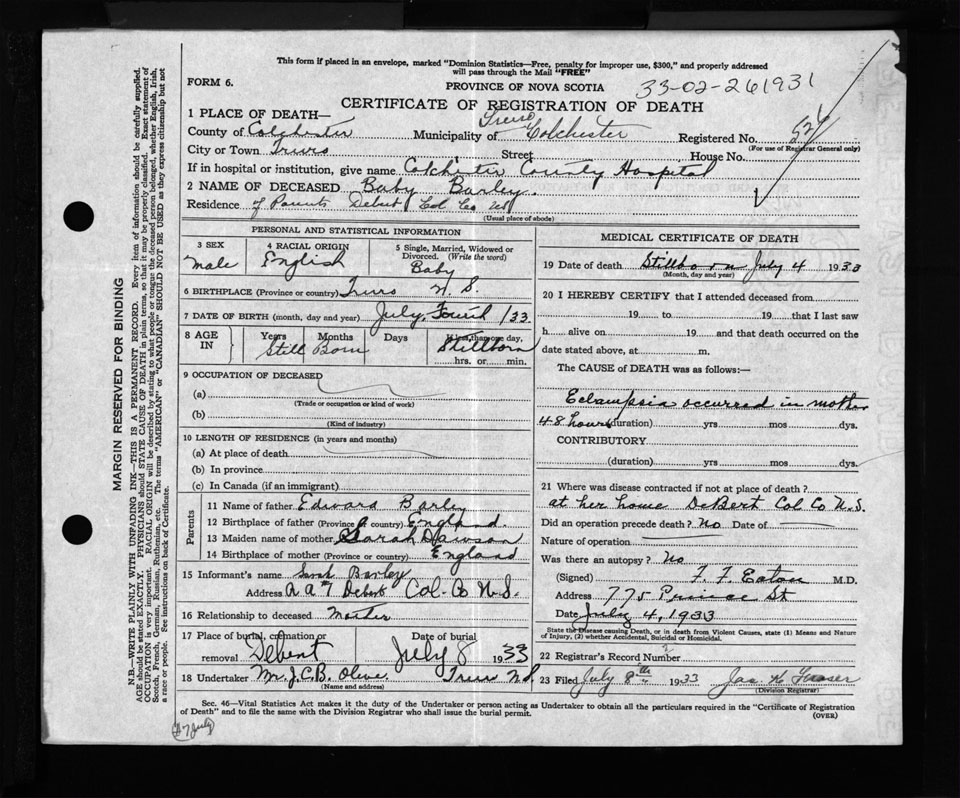 This form if placed in an envelope, marked "Dominion Statistics—Free, penalty for improper use, $300," and properly addressed
will pass through the Mail "FREE"
FORM 6.
PROVINCE OF NOVA SCOTIA
33-02-261931
CERTIFICATE OF REGISTRATION OF DEATH
1 PLACE OF DEATH—
County of Colchester Municipality of Colchester Registered No. 526
(For use of Registrar General only)
City or Town Truro Street House No.
If in hospital or institution, give name Colchester County Hospital
2 NAME OF DECEASED Baby Barley.
Residence of Parents Debert Col Co NS
(Usual place of abode)
PERSONAL AND STATISTICAL INFORMATION
3 SEX
male
4 RACIAL ORIGIN
English
5 Single, Married, Widowed or
Divorced. (Write the word)
Baby
6 BIRTHPLACE (Province or country) Truro N. S.
7 DATE OF BIRTH (month, day and year) July, Fourth /33.
8 AGE IN
Years Months Days If less than one day,
Still Born Stillborn
hrs. or min.
9 OCCUPATION OF DECEASED
(a)
(Trade or occupation or kind of work)
(b)
(Kind of industry)
10 LENGTH OF RESIDENCE (in years and months)
(a) At place of death
(b) In province
(c) In Canada (if an immigrant)
Parents
11 Name of father Edward Barley
12 Birthplace of father (Province or country) England
13 Maiden name of mother Sarah Dawson
14 Birthplace of mother (Province or country) England
15 Informant's name Sarah Barley
Address Debert Col. Co N.S.
16 Relationship to deceased Mother
17 Place of burial, cremation or
removal Debert
Date of burial
July 8 1933
18 Undertaker Mr. J.C.B. Olive Truro N.S.
(Name and address)
MEDICAL CERTIFICATE OF DEATH
19 Date of death Stillborn July 4 1933
(Month, day and year)
20 I HEREBY CERTIFY that I attended deceased from
19 to 19 that I last saw
h alive on 19 and that death occurred on the
date stated above, at m.
The CAUSE of DEATH was as follows:—
Eclampsia occurred in mother
48 hours (duration) yrs mos dys.
CONTRIBUTORY
(duration) yrs mos dys.
21 Where was disease contracted if not at place of death?
at her home DeBert Col Co N.S.
Did an operation precede death? No Date of
Nature of operation
Was there an autopsy? No
(Signed) F. F. Eaton M.D.
Address 775 Prince St
Date July 4, 1933
State the Disease causing Death, or in death from Violent Causes, state (1) Means and Nature
of Injury, (2) whether Accidental, Suicidal or Homicidal.
22 Registrar's Record Number
23 Filed July 8th 1933 Jas H Fraser
(Division Registrar)
Sec. 46—Vital Statistics Act makes it the duty of the Undertaker or person acting as Undertaker to obtain all the particulars required in the "Certificate of Registration
of Death" and to file the same with the Division Registrar who shall issue the burial permit.
(OVER)
MARGIN RESERVED FOR BINDING
N.B.—WRITE PLAINLY WITH UNFADING INK—THIS IS A PERMANENT RECORD. Every item of information should be carefully supplied.
AGE should be stated EXACTLY. PHYSICIANS should STATE CAUSE OF DEATH in plain terms, so that it may be properly classified. Exact statement of
OCCUPATION is very important. RACIAL ORIGIN will be described by stating to what people or tongue the deceased person belonged, whether English, Irish,
Scotch, French, German, Russian, Ruthenian, etc. The terms "AMERICAN" or "CANADIAN" SHOULD NOT BE USED as they express citizenship but not
a race or people. See instructions on back of Certificate.